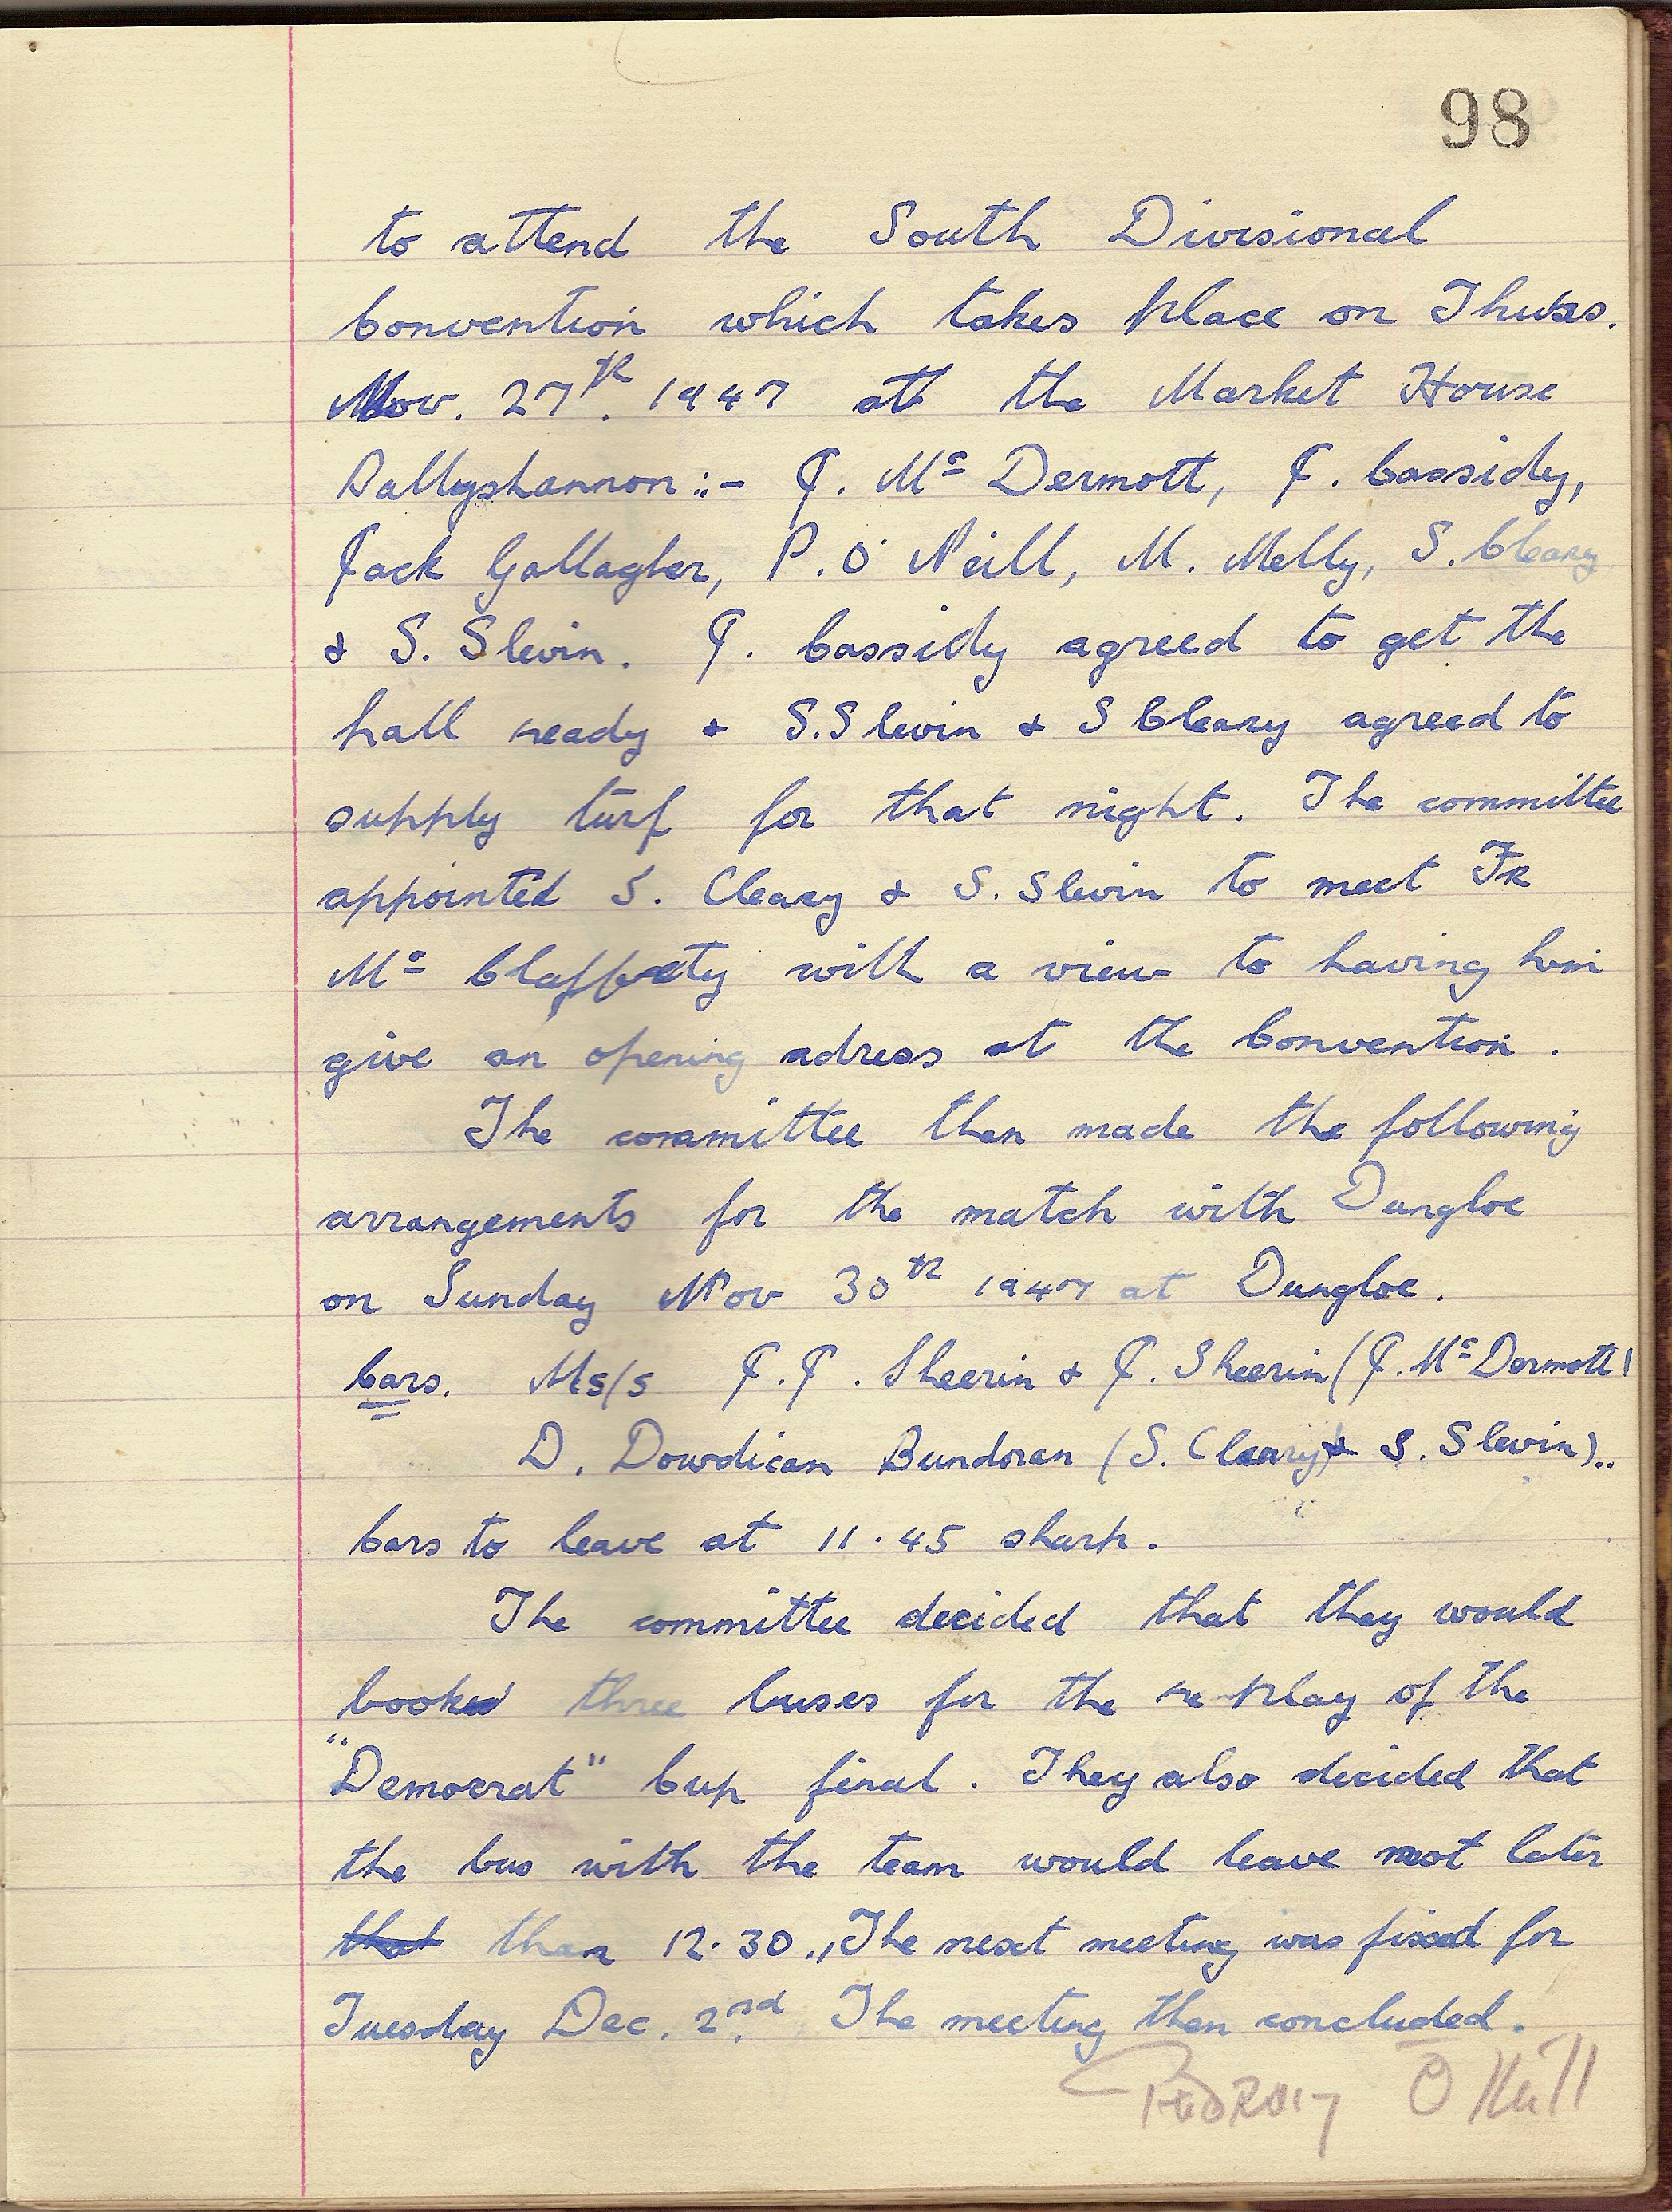 98
to attend the South Divisional
Convention which takes place on Thurs.
Nov. 27th. 1947 at the Market House
Ballyshannon :- J. Mc Dermott, J. Cassidy,
Jack Gallagher, P. O' Neill, M. Melly, S. Cleary
& S. Slevin. J. Cassidy agreed to get the
hall ready & S. Slevin & S Cleary agreed to
supply turf for that night. The committee
appointed S. Cleary & S. Slevin to meet Fr
Mc Clafferty with a view to having him
give an opening adress at the Convention.
The committee then made the following
arrangements for the match with Dungloe
on Sunday Nov 30th 1947 at Dungloe.
Cars. Ms/s J.J. Sheerin & J. Sheerin (J. Mc Dermott)
D. Dowdican Bundoran (S. Cleary & S. Slevin)..
Cars to leave at 11.45 sharp.
The committee decided that they would
book three buses for the re-play of the
"Democrat" Cup final. They also decided that
the bus with the team would leave not later
that than 12.30., The next meeting was fixed for
Tuesday Dec. 2nd. The meeting then concluded.
Pádraig Ó Néill